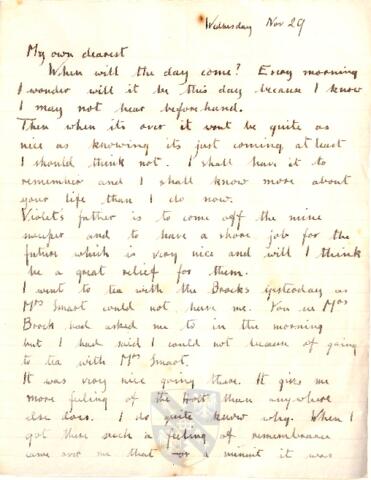 Wednesday Nov 29
My own dearest
When will the day come? Every morning
I wonder will it be this day because I know
I may not hear beforehand.
Then when its over it wont be quite as
nice as knowing its just coming at least
I should think not. I shall have it to
remember and I shall know more about
your life than I do now.
Violet's father is to come off the mine
sweeper and to have a shore job for the
future which is very nice and will I think
be a great relief for them.
I went to tea with the Brocks yesterday as
Mrs Smart could not have me. You see Mrs
Brock had asked me to in the morning
but I had said I could not because of going
to tea with Mrs Smart.
It was very nice going there. It gives me
more feeling of the Holt than anywhere
else does. I do quite know why. When I
got there such a feeling of remembrance
came over me that for 1 minuit it was